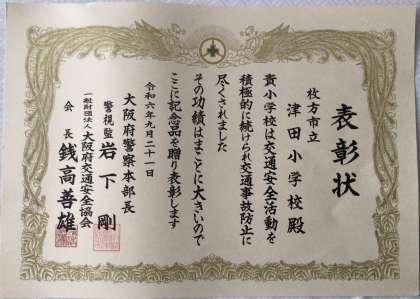 表彰状
枚方市立
津田小学校殿
貴小学校は交通安全活動を
積極的に続けられ交通事故防止に
尽くされました
その功績はまことに大きいので
ここに記念品を贈り表彰します
令和六年九月二十一日
大阪府警察本部長
警視監 岩下剛
一般財団法人大阪府交通安全協会
会長 銭高善雄